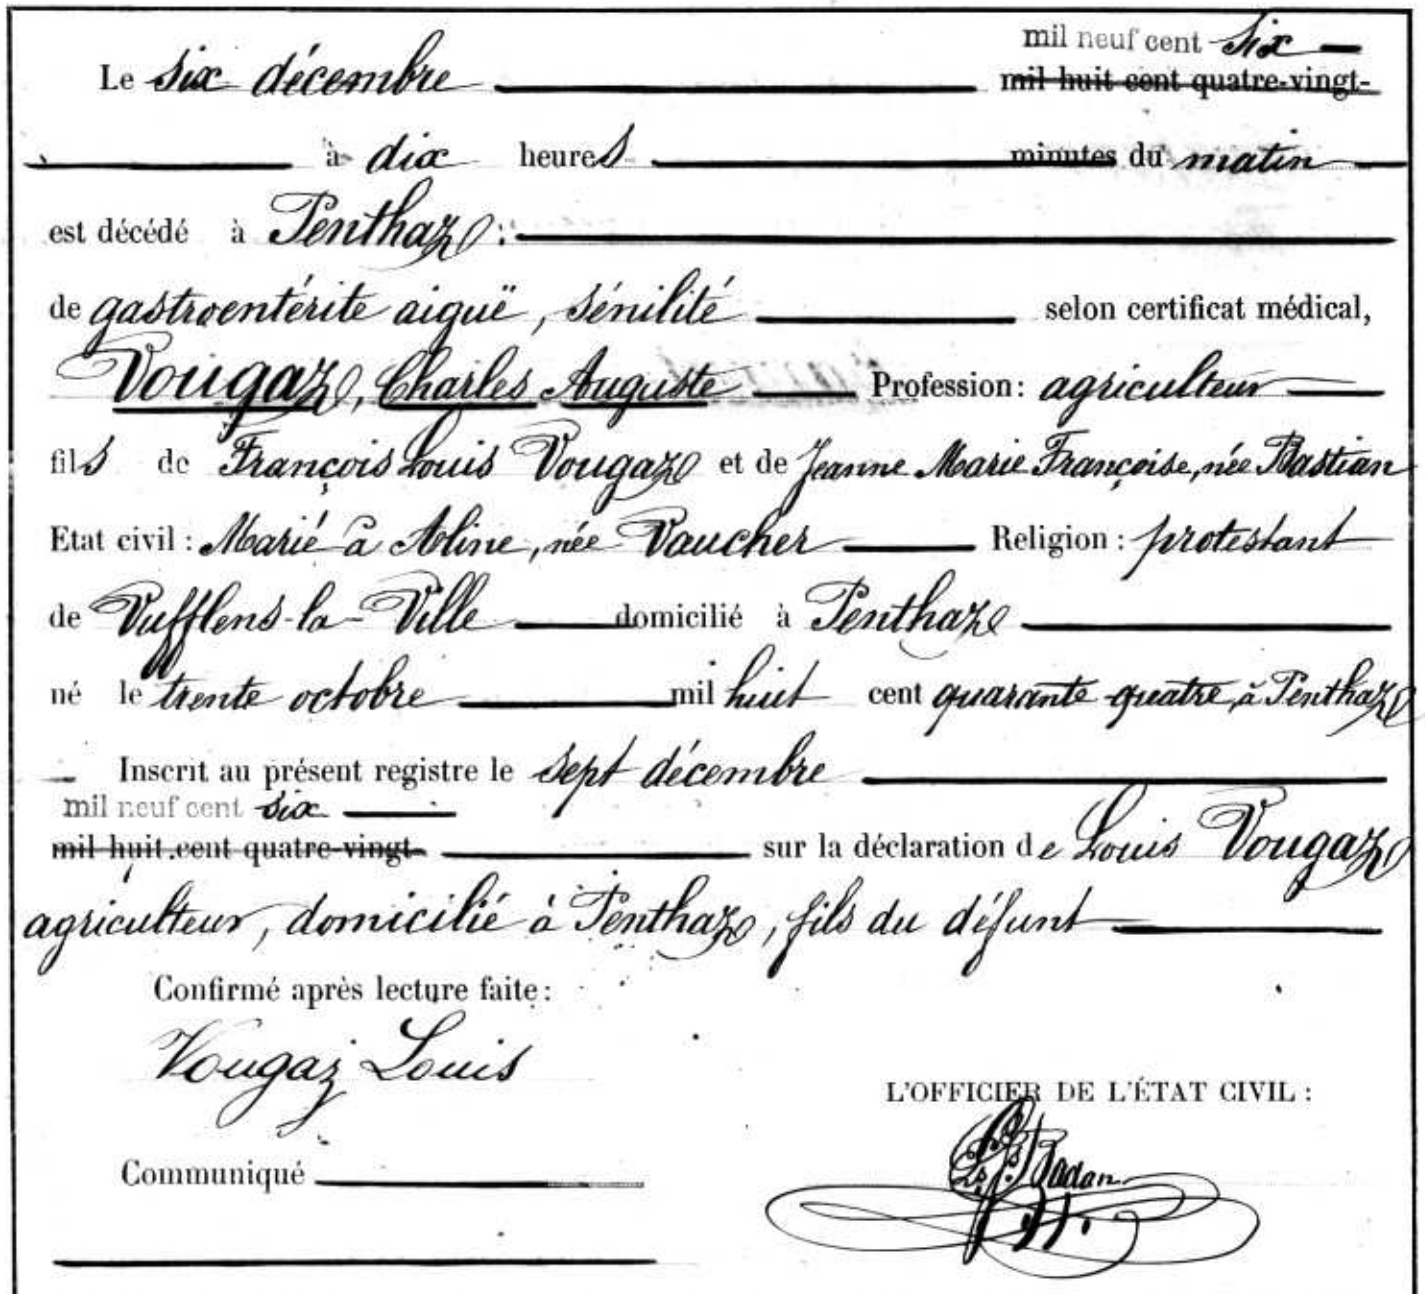 mil neuf cent six
Le six décembre mil huit cent quatre-vingt-
à dix heures minutes du matin
est décédé à Penthaz :
de gastroentérite aiguë, sénilité selon certificat médical,
Vougaz, Charles Auguste Profession : agriculteur
fils de François Louis Vougaz et de Jeanne Marie Françoise, née Bastian
Etat civil : Marié à Aline, née Vaucher Religion : protestant
de Vufflens-la-Ville domicilié à Penthaz
né le trente octobre mil huit cent quarante quatre, à Penthaz
Inscrit au présent registre le sept décembre
mil neuf cent six
mil huit cent quatre-vingt- sur la déclaration de Louis Vougaz
agriculteur, domicilié à Penthaz, fils du défunt
Confirmé après lecture faite :
Vougaz Louis
L'OFFICIER DE L'ÉTAT CIVIL :
Badan
Communiqué